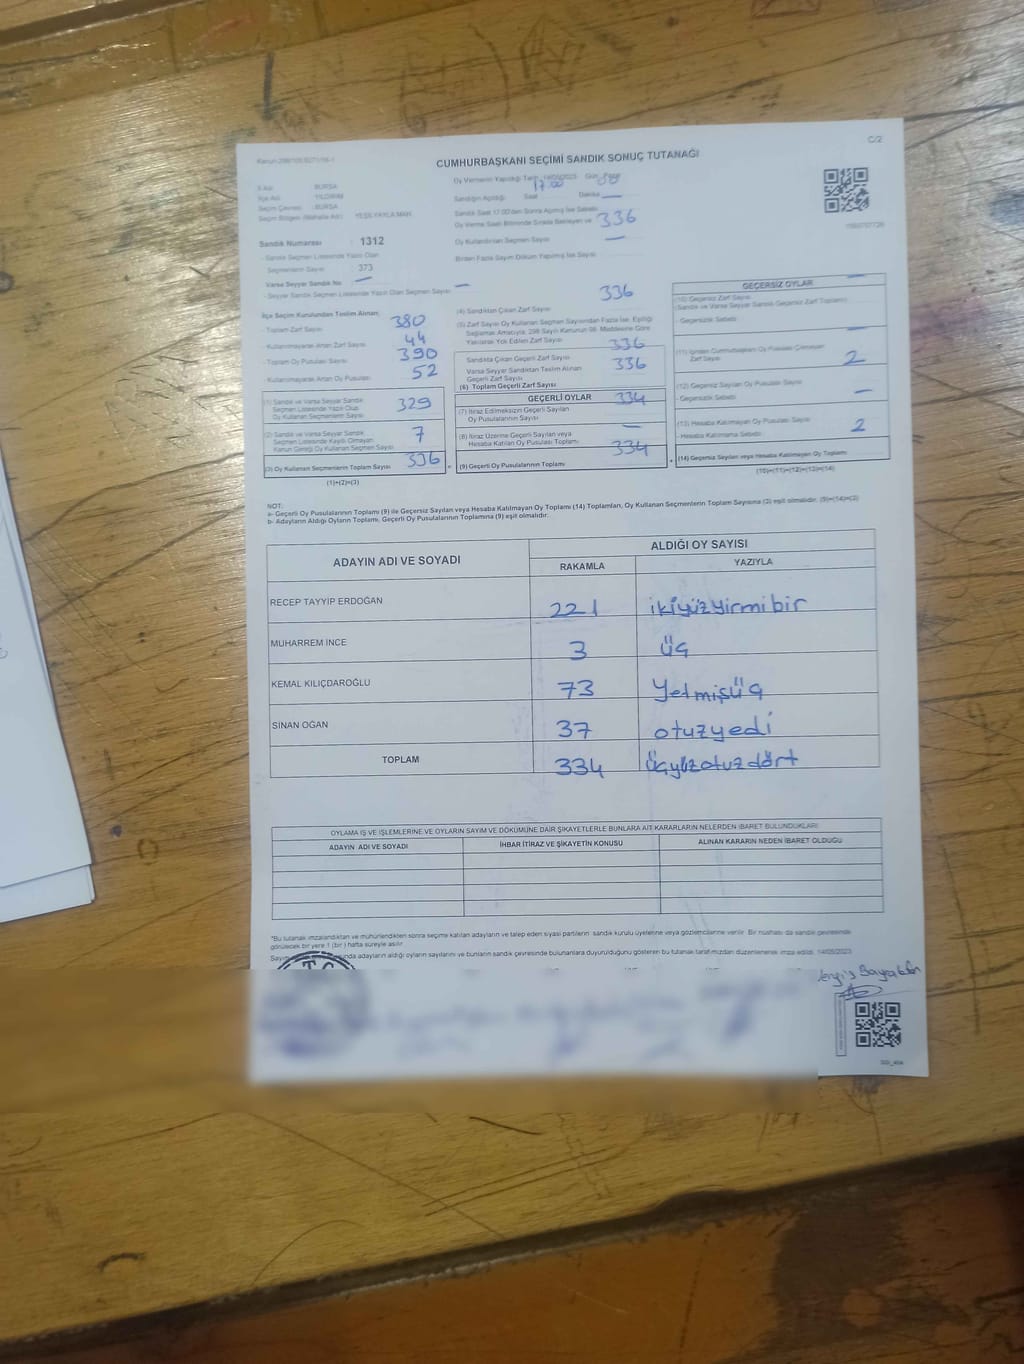 C/2
CUMHURBAŞKANI SEÇİMİ SANDIK SONUÇ TUTANAĞI
Oy Vermenin Yapıldığı Tarih 14/05/2023 Gün
17:00
İli Adı : BURSA
İlçe Adı : YILDIRIM
Seçim Çevresi : BURSA
Seçim Bölgesi (Mahalle Adı) : YEŞİLYAYLA MAH.
Sandığın Açıldığı Saat Dakika —
Sandık Saat 17.00'den Sonra Açılmış İse Sebebi
Oy Verme Saati Bitiminde Sırada Bekleyen ve 336
Oy Kullandırılan Seçmen Sayısı —
Birden Fazla Sayım Döküm Yapılmış İse Sayısı
Sandık Numarası : 1312
- Sandık Seçmen Listesinde Yazılı Olan
Seçmenlerin Sayısı : 373
Varsa Seyyar Sandık No —
- Seyyar Sandık Seçmen Listesinde Yazılı Olan Seçmen Sayısı —
İlçe Seçim Kurulundan Teslim Alınan;
- Toplam Zarf Sayısı 380
- Kullanılmayarak Artan Zarf Sayısı 44
- Toplam Oy Pusulası Sayısı 390
- Kullanılmayarak Artan Oy Pusulası 52
(1) Sandık ve Varsa Seyyar Sandık
Seçmen Listesinde Yazılı Olup
Oy Kullanan Seçmenlerin Sayısı 329
(2) Sandık ve Varsa Seyyar Sandık
Seçmen Listesinde Kayıtlı Olmayan
Kanun Gereği Oy Kullanan Seçmen Sayısı 7
(3) Oy Kullanan Seçmenlerin Toplam Sayısı 336
(1)+(2)=(3)
336
(4) Sandıktan Çıkan Zarf Sayısı
(5) Zarf Sayısı Oy Kullanan Seçmen Sayısından Fazla İse, Eşitliği
Sağlamak Amacıyla, 298 Sayılı Kanunun 98. Maddesine Göre
Yakılarak Yok Edilen Zarf Sayısı 336
Sandıkta Çıkan Geçerli Zarf Sayısı 336
Varsa Seyyar Sandıktan Teslim Alınan
Geçerli Zarf Sayısı
(6) Toplam Geçerli Zarf Sayısı
GEÇERLİ OYLAR 334
(7) İtiraz Edilmeksizin Geçerli Sayılan
Oy Pusulalarının Sayısı
(8) İtiraz Üzerine Geçerli Sayılan veya —
Hesaba Katılan Oy Pusulası Toplamı 334
(9) Geçerli Oy Pusulalarının Toplamı
GEÇERSİZ OYLAR
(10) Geçersiz Zarf Sayısı
(Sandık ve Varsa Seyyar Sandık Geçersiz Zarf Toplamı)
- Geçersizlik Sebebi
(11) İçinden Cumhurbaşkanı Oy Pusulası Çıkmayan
Zarf Sayısı 2
(12) Geçersiz Sayılan Oy Pusulası Sayısı
- Geçersizlik Sebebi —
(13) Hesaba Katılmayan Oy Pusulası Sayısı
- Hesaba Katılmama Sebebi 2
(14) Geçersiz Sayılan veya Hesaba Katılmayan Oy Toplamı
(10)+(11)+(12)+(13)=(14)
NOT:
a- Geçerli Oy Pusulalarının Toplamı (9) ile Geçersiz Sayılan veya Hesaba Katılmayan Oy Toplamı (14) Toplamları, Oy Kullanan Seçmenlerin Toplam Sayısına (3) eşit olmalıdır. (9)+(14)=(3)
b- Adayların Aldığı Oyların Toplamı, Geçerli Oy Pusulalarının Toplamına (9) eşit olmalıdır.
ADAYIN ADI VE SOYADI ALDIĞI OY SAYISI
RAKAMLA YAZIYLA
RECEP TAYYİP ERDOĞAN 221 ikiyüzyirmibir
MUHARREM İNCE 3 üç
KEMAL KILIÇDAROĞLU 73 Yetmişüç
SİNAN OĞAN 37 otuzyedi
TOPLAM 334 üçyüzotuzdört
OYLAMA İŞ VE İŞLEMLERİNE VE OYLARIN SAYIM VE DÖKÜMÜNE DAİR ŞİKAYETLERLE BUNLARA AİT KARARLARIN NELERDEN İBARET BULUNDUKLARI
ADAYIN ADI VE SOYADI İHBAR İTİRAZ VE ŞİKAYETİN KONUSU ALINAN KARARIN NEDEN İBARET OLDUĞU
*Bu tutanak imzalandıktan ve mühürlendikten sonra seçime katılan adayların ve talep eden siyasi partilerin sandık kurulu üyelerine veya gözlemcilerine verilir. Bir nüshası da sandık çevresinde
görülecek bir yere 1 (bir) hafta süreyle asılır.
adayların aldığı oyların sayılarını ve bunların sandık çevresinde bulunanlara duyurulduğunu gösteren bu tutanak tarafımızdan düzenlenerek imza edildi. 14/05/2023
T.C.